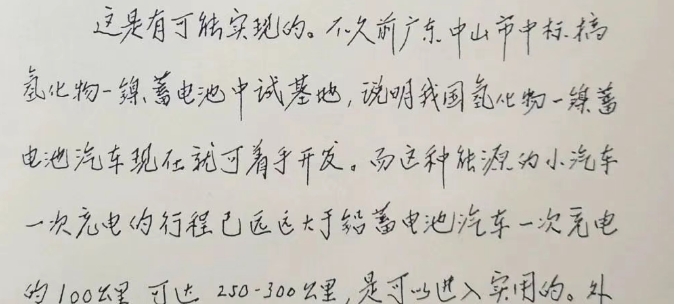 这是有可能实现的。不久前广东中山市中标搞
氢化物—镍蓄电池中试基地，说明我国氢化物—镍蓄
电池汽车现在就可着手开发。而这种能源为小汽车
一次充电的行程已远远大于铅蓄电池汽车一次充电
的100公里，可达250-300公里，是可以进入实用的。外